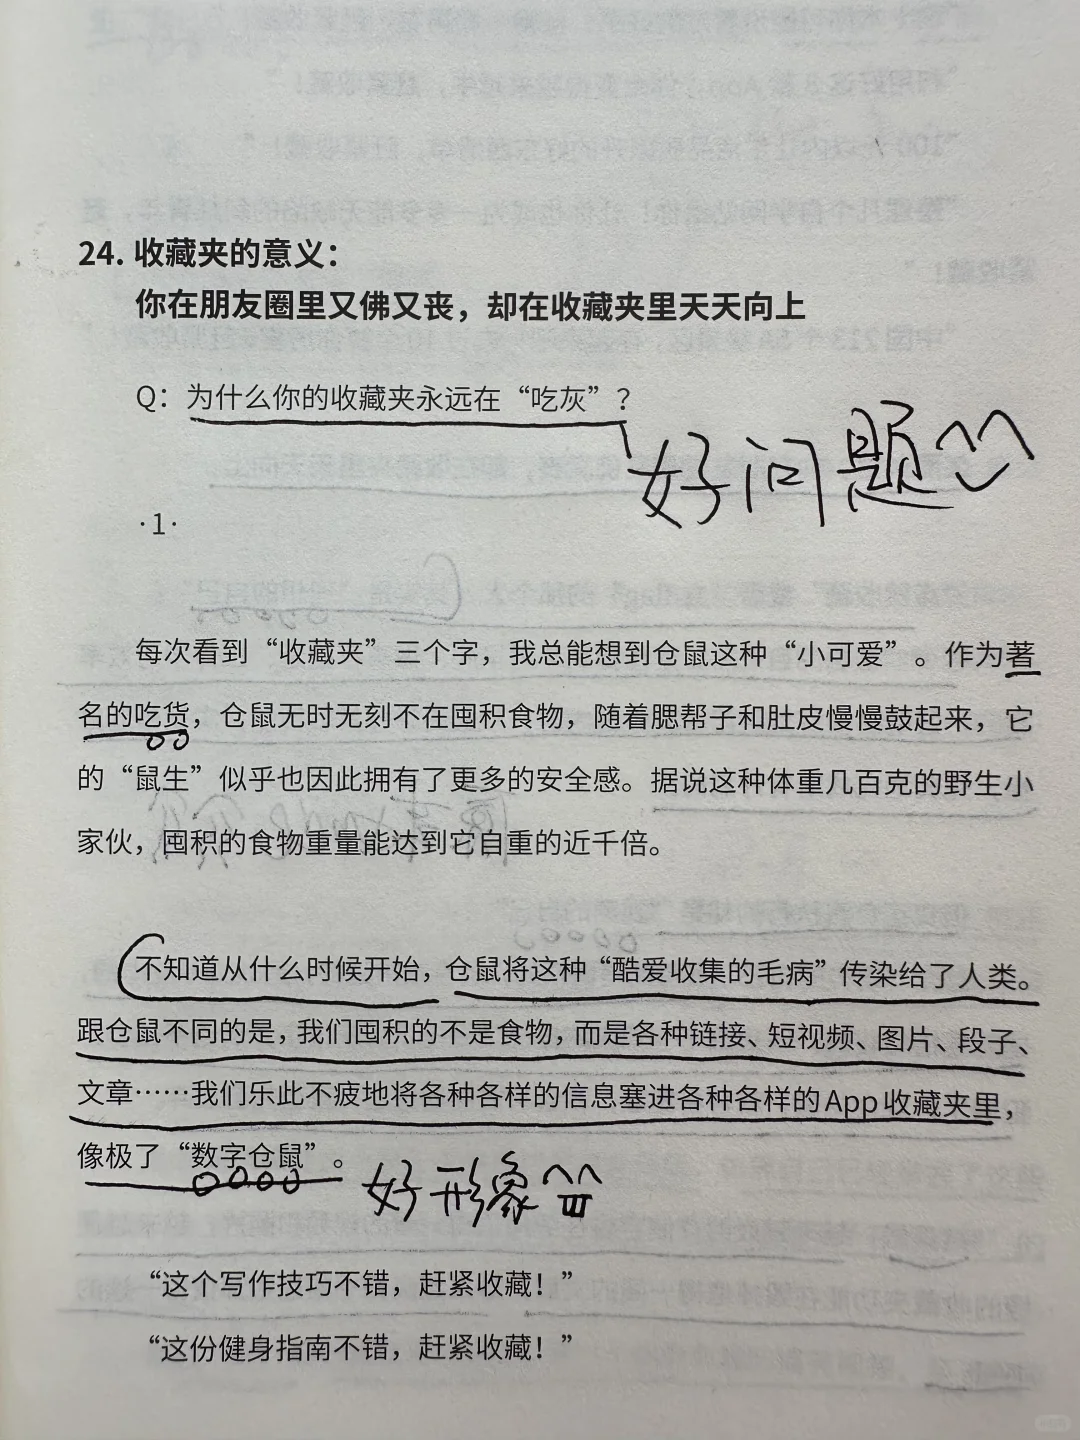 24. 收藏夹的意义：
你在朋友圈里又佛又丧，却在收藏夹里天天向上
Q：为什么你的收藏夹永远在“吃灰”？
好问题
·1·
每次看到“收藏夹”三个字，我总能想到仓鼠这种“小可爱”。作为著
名的吃货，仓鼠无时无刻不在囤积食物，随着腮帮子和肚皮慢慢鼓起来，它
的“鼠生”似乎也因此拥有了更多的安全感。据说这种体重几百克的野生小
家伙，囤积的食物重量能达到它自重的近千倍。
不知道从什么时候开始，仓鼠将这种“酷爱收集的毛病”传染给了人类。
跟仓鼠不同的是，我们囤积的不是食物，而是各种链接、短视频、图片、段子、
文章……我们乐此不疲地将各种各样的信息塞进各种各样的App收藏夹里，
像极了“数字仓鼠”。
好形象
“这个写作技巧不错，赶紧收藏！”
“这份健身指南不错，赶紧收藏！”